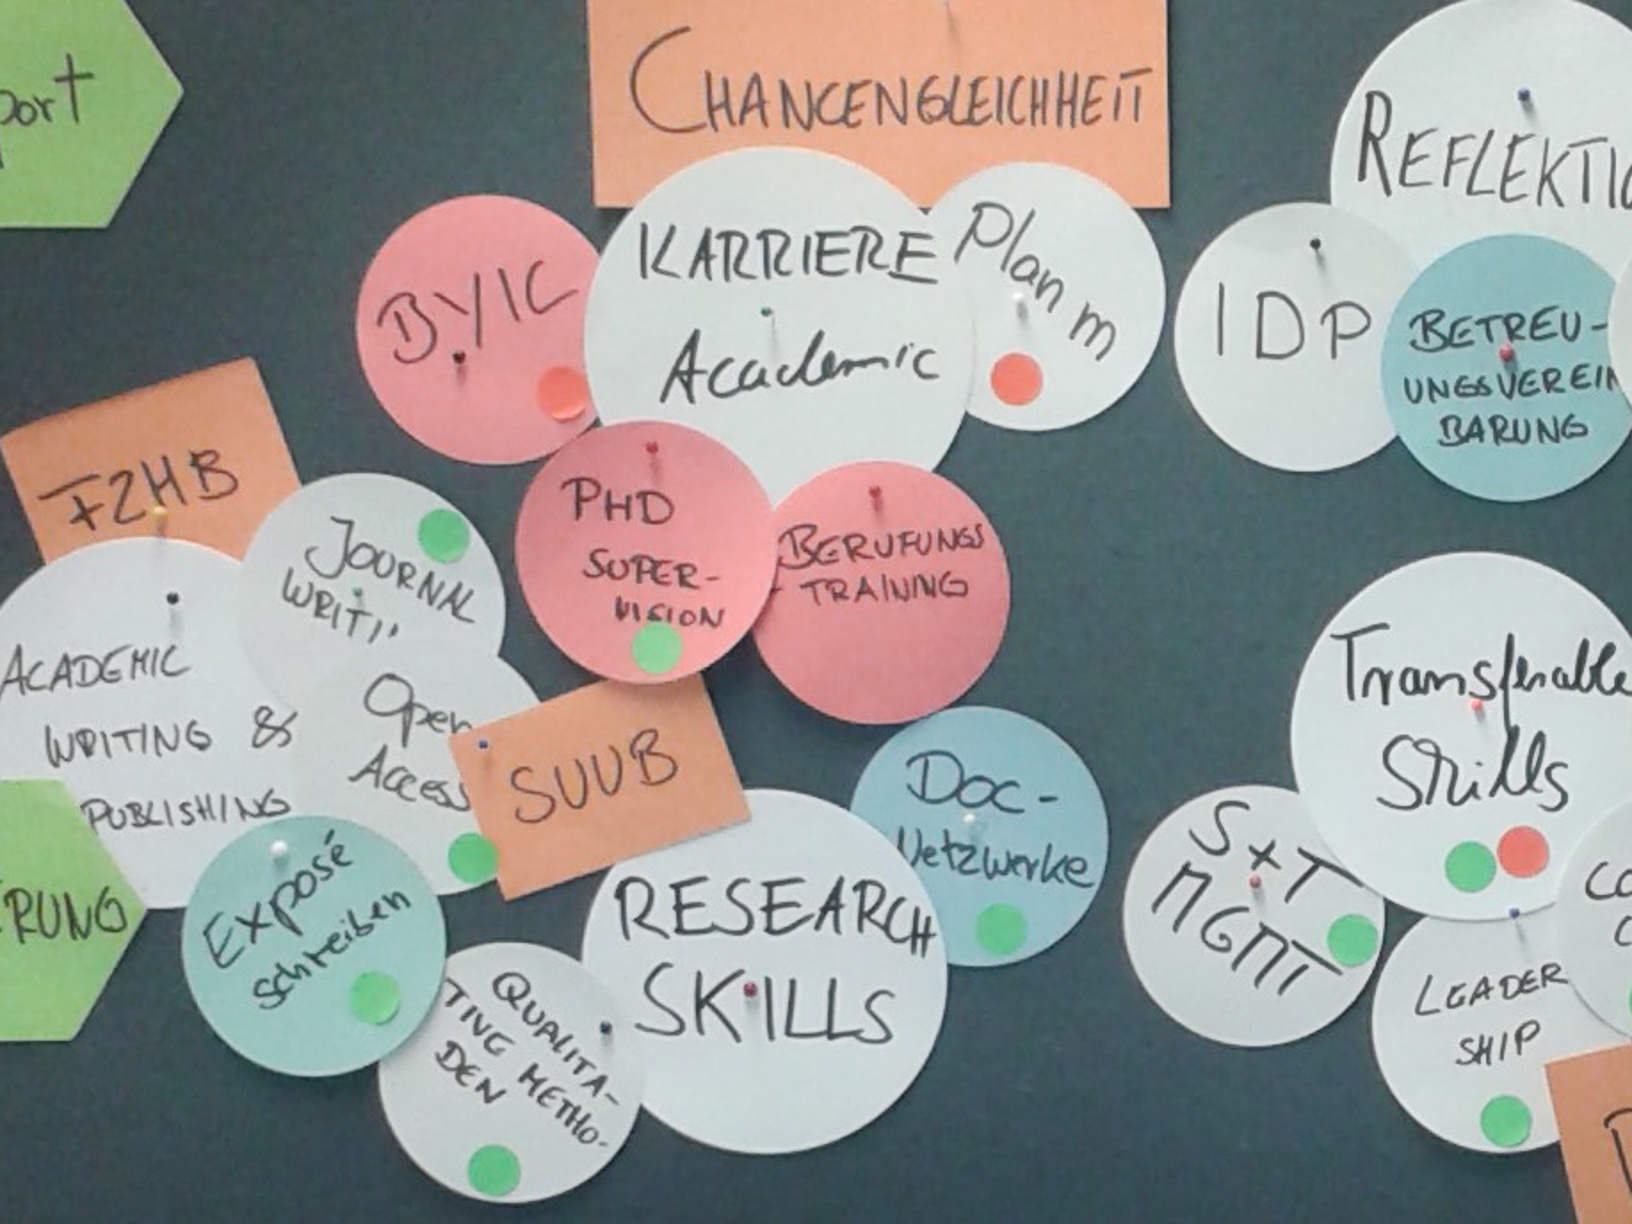 port
CHANCENGLEICHHEIT
REFLEKTIO
BYIC
KARRIERE
Academic
Plan m
IDP
BETREU-
UNGSVEREIN
BARUNG
FZHB
JOURNAL
WRITI'
PHD
SUPER-
VISION
BERUFUNGS
-TRAINING
ACADEMIC
WRITING &
PUBLISHING
Open
Access
SUUB
DOC-
Netzwerke
Transferable
Skills
S+T
MGMT
RUNG
Exposé
schreiben
RESEARCH
SKILLS
QUALITA-
TIVE METHO-
DEN
LEADER
SHIP
CO